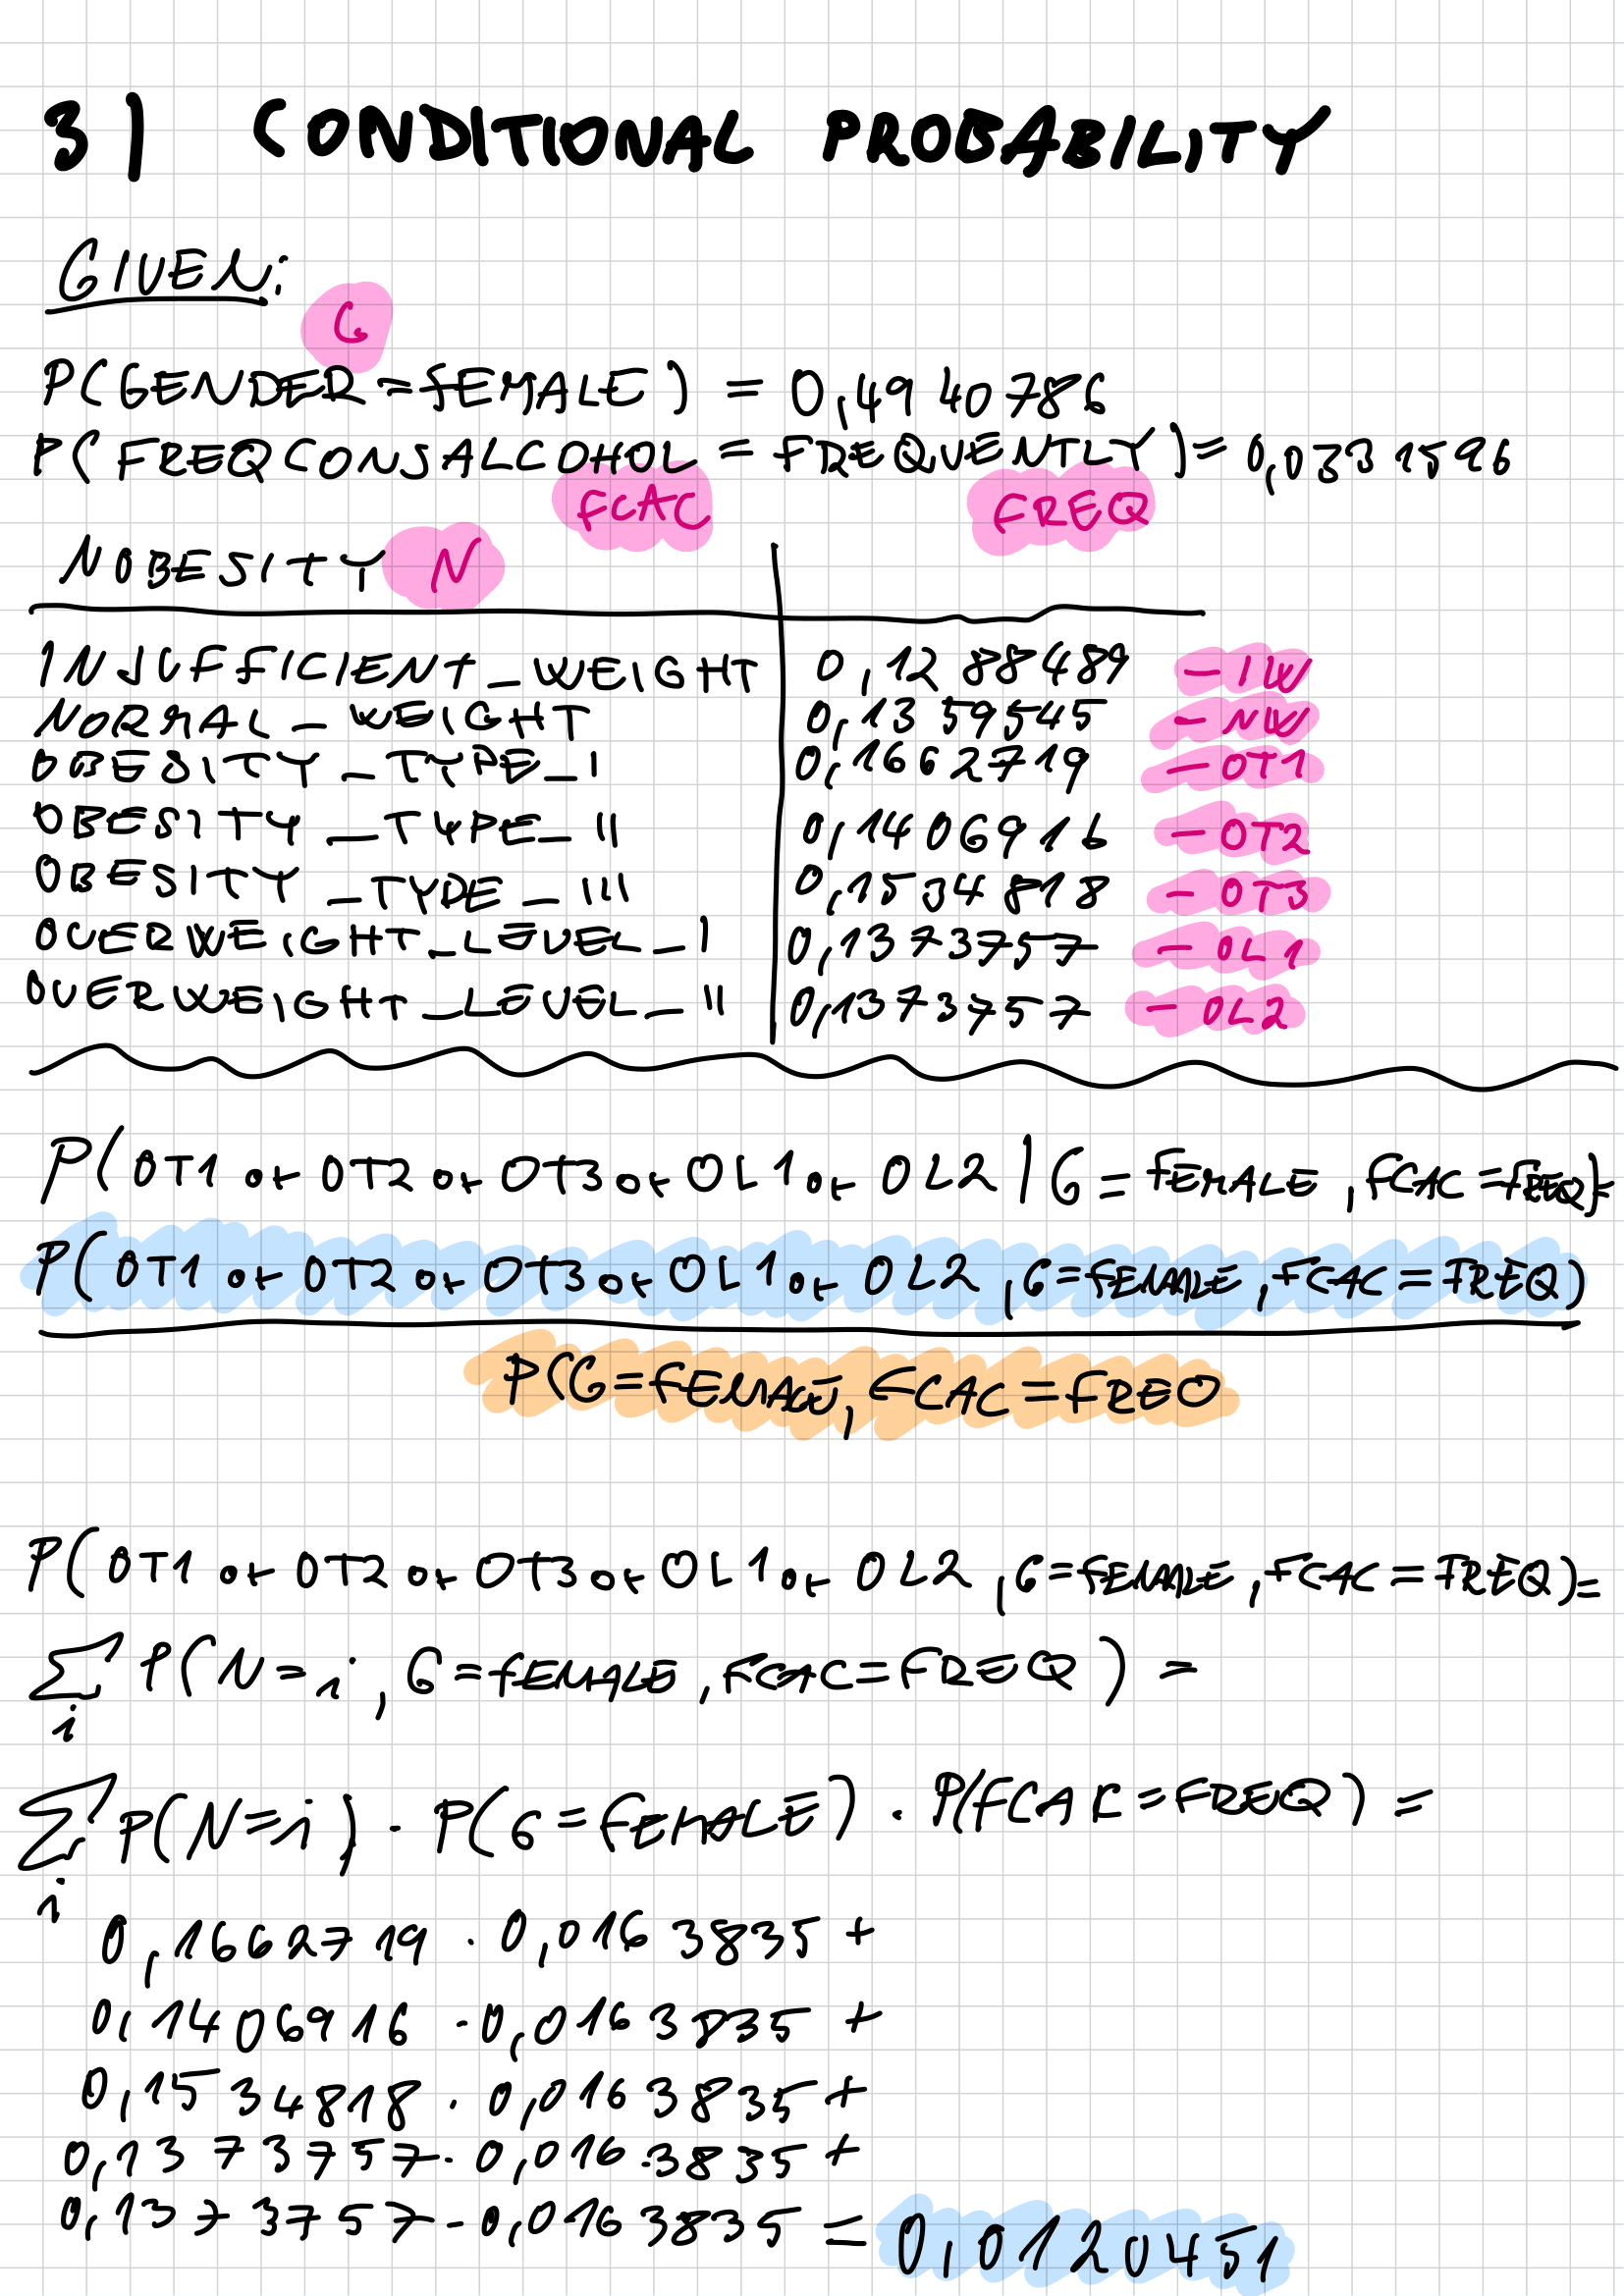 3) CONDITIONAL PROBABILITY
GIVEN:
G
P(GENDER = FEMALE) = 0,4940786
P(FREQCONSALCOHOL = FREQUENTLY) = 0,0331596
FCAC FREQ
NOBESITY N
INSUFFICIENT_WEIGHT 0,1288489 - IW
NORMAL_WEIGHT 0,1359545 - NW
OBESITY_TYPE_I 0,1662719 - OT1
OBESITY_TYPE_II 0,1406916 - OT2
OBESITY_TYPE_III 0,1534818 - OT3
OVERWEIGHT_LEVEL_I 0,1373757 - OL1
OVERWEIGHT_LEVEL_II 0,1373757 - OL2
P(OT1 or OT2 or OT3 or OL1 or OL2 | G = FEMALE, FCAC = FREQ) =
P(OT1 or OT2 or OT3 or OL1 or OL2, G = FEMALE, FCAC = FREQ)
P(G = FEMALE, FCAC = FREQ
P(OT1 or OT2 or OT3 or OL1 or OL2, G = FEMALE, FCAC = FREQ) =
∑ P(N = i, G = FEMALE, FCAC = FREQ) =
i
∑ P(N = i) · P(G = FEMALE) · P(FCAC = FREQ) =
i
0,1662719 · 0,0163835 +
0,1406916 · 0,0163835 +
0,1534818 · 0,0163835 +
0,1373757 · 0,0163835 +
0,1373757 · 0,0163835 = 0,0120451